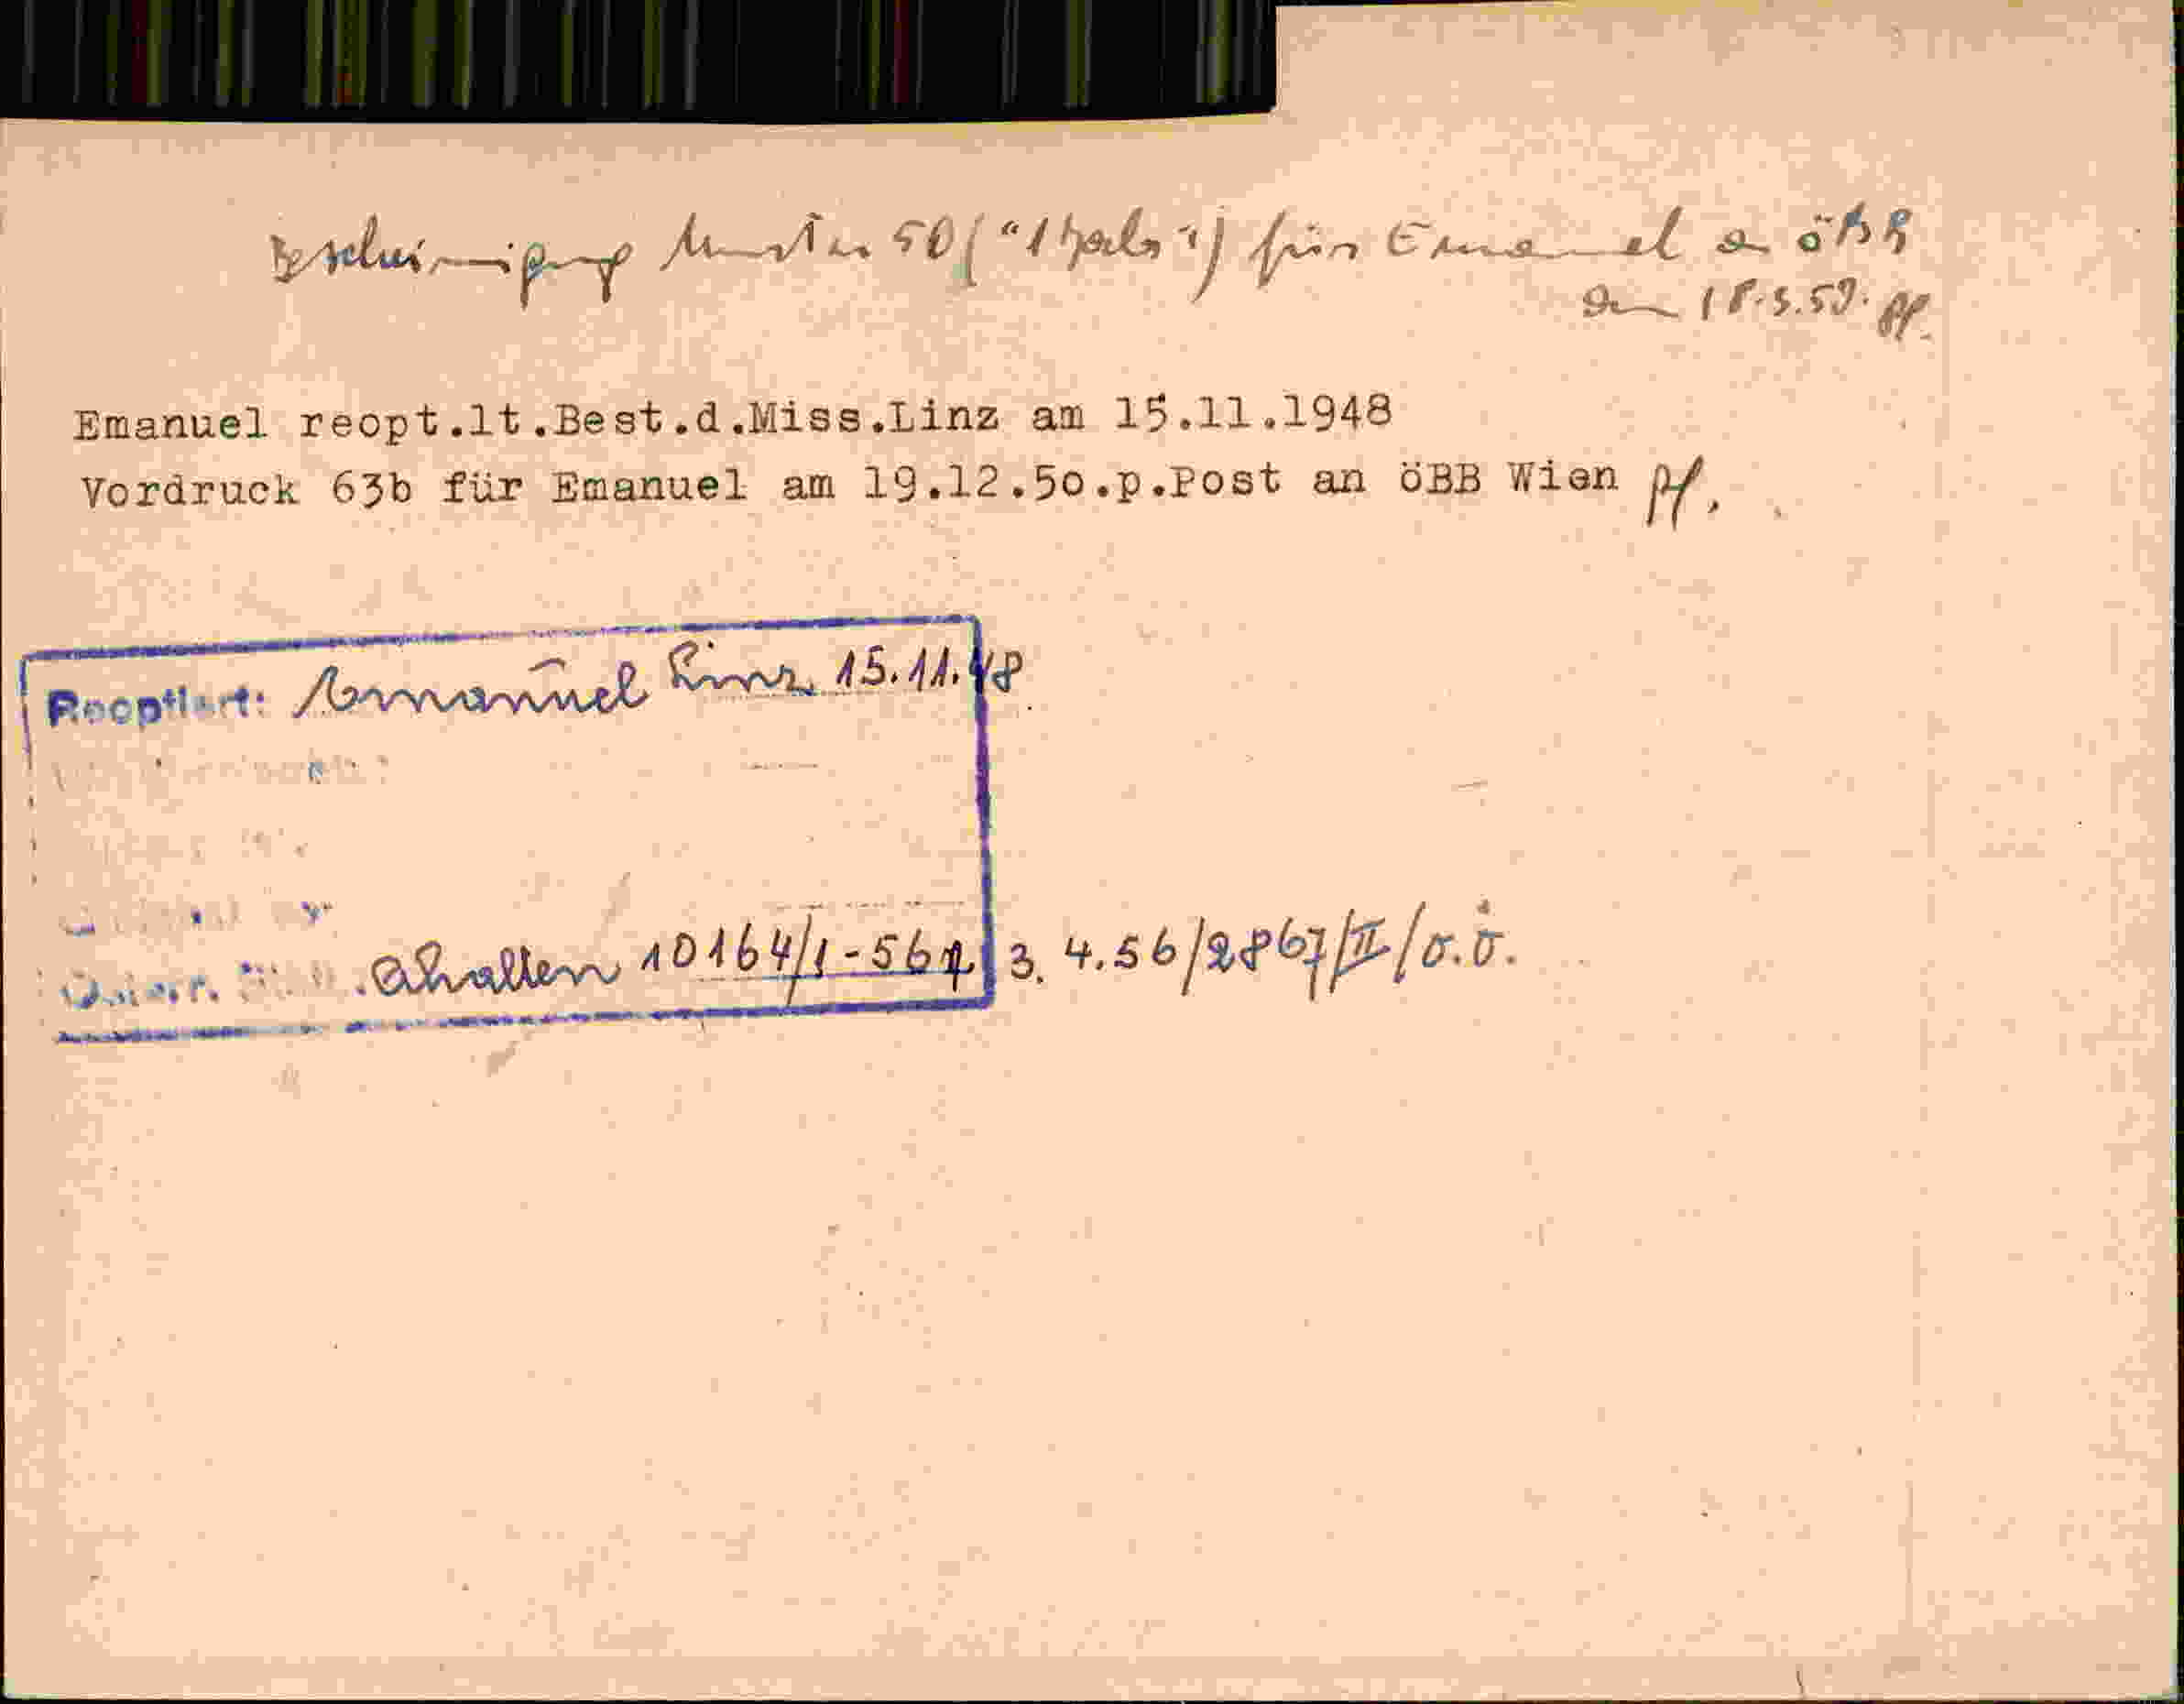 Bescheinigung Muster 50 ( ) für Emanuel a öBB
18.3.59.
Emanuel reopt.lt.Best.d.Miss.Linz am 15.11.1948
Vordruck 63b für Emanuel am 19.12.50.p.Post an öBB Wien
Reoptiert: Emanuel Linz 15.11.48
erhalten 10164/1-56 3. 4.56/2867/II/